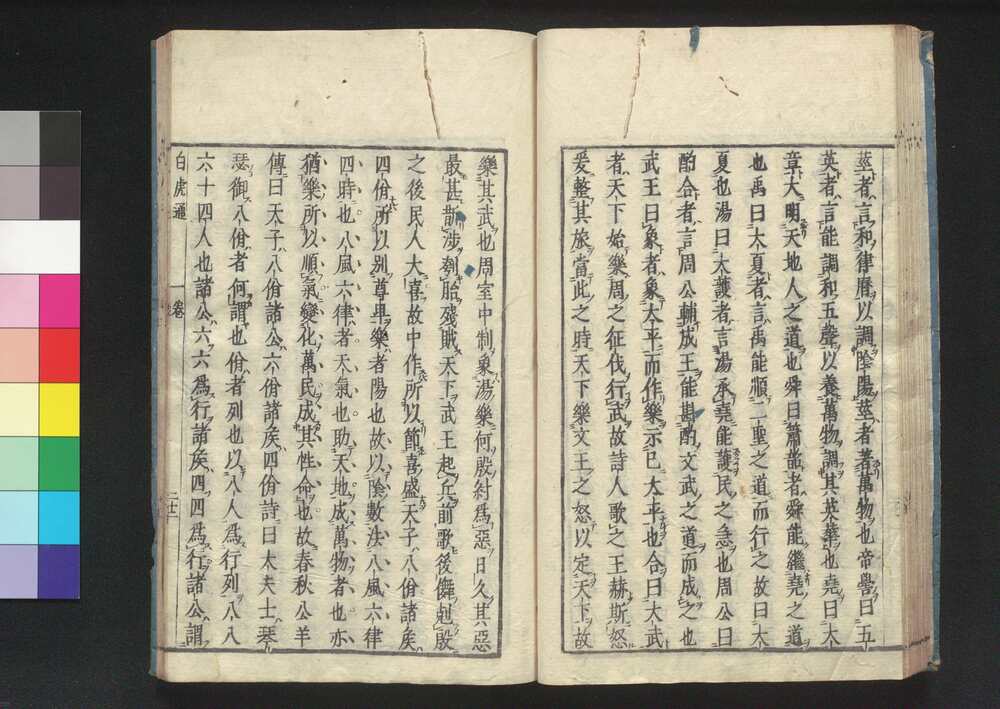 莖者言和律暦以調陰陽莖者著萬物也帝嚳曰五
英者言能調和五聲以養萬物調其英華也堯曰大
章大明天地人之道也舜曰簫韶者舜能繼堯之道
也禹曰大夏者言禹能順二聖之道而行之故曰大
夏也湯曰大護者言湯承堯能護民之急也周公曰
酌合者言周公輔成王能斟酌文武之道而成之也
武王曰象者象太平而作樂示已太平也合曰大武
者天下始樂周之征伐行武故詩人歌之王赫斯怒
爰整其旅當此之時天下樂文王之怒以定天下故
樂其武也周室中制象湯樂何殷紂爲惡日久其惡
最甚斮涉刳胎殘賊天下武王起兵前歌後儛剋殷
之後民人大喜故中作所以節喜盛天子八佾諸矦
四佾所以别尊卑樂者陽也故以陰數法八風六律
四時也八風六律者天氣也助天地成萬物者也亦
猶樂所以順氣變化萬民成其性命也故春秋公羊
傳曰天子八佾諸公六佾諸矦四佾詩曰大夫士琴
瑟御八佾者何謂也佾者列也以八人爲行列八八
六十四人也諸公六六爲行諸矦四四爲行諸公謂
白虎通 一卷 二十二